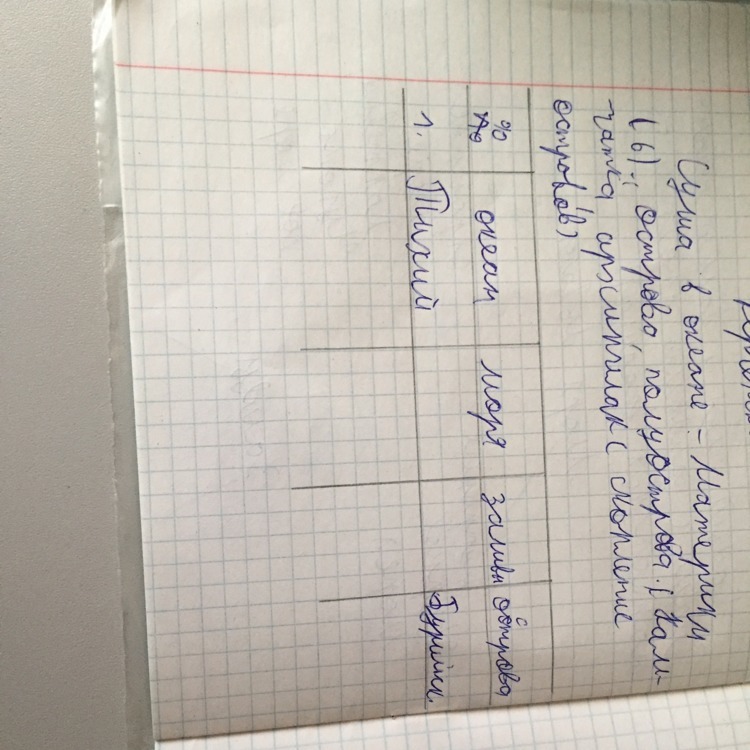 Суша в океане - Материки
(6); острова, полуострова (Кам-
чатка, архипилак ( скопление
островов)
№ океан моря заливы острова
1. Тихий